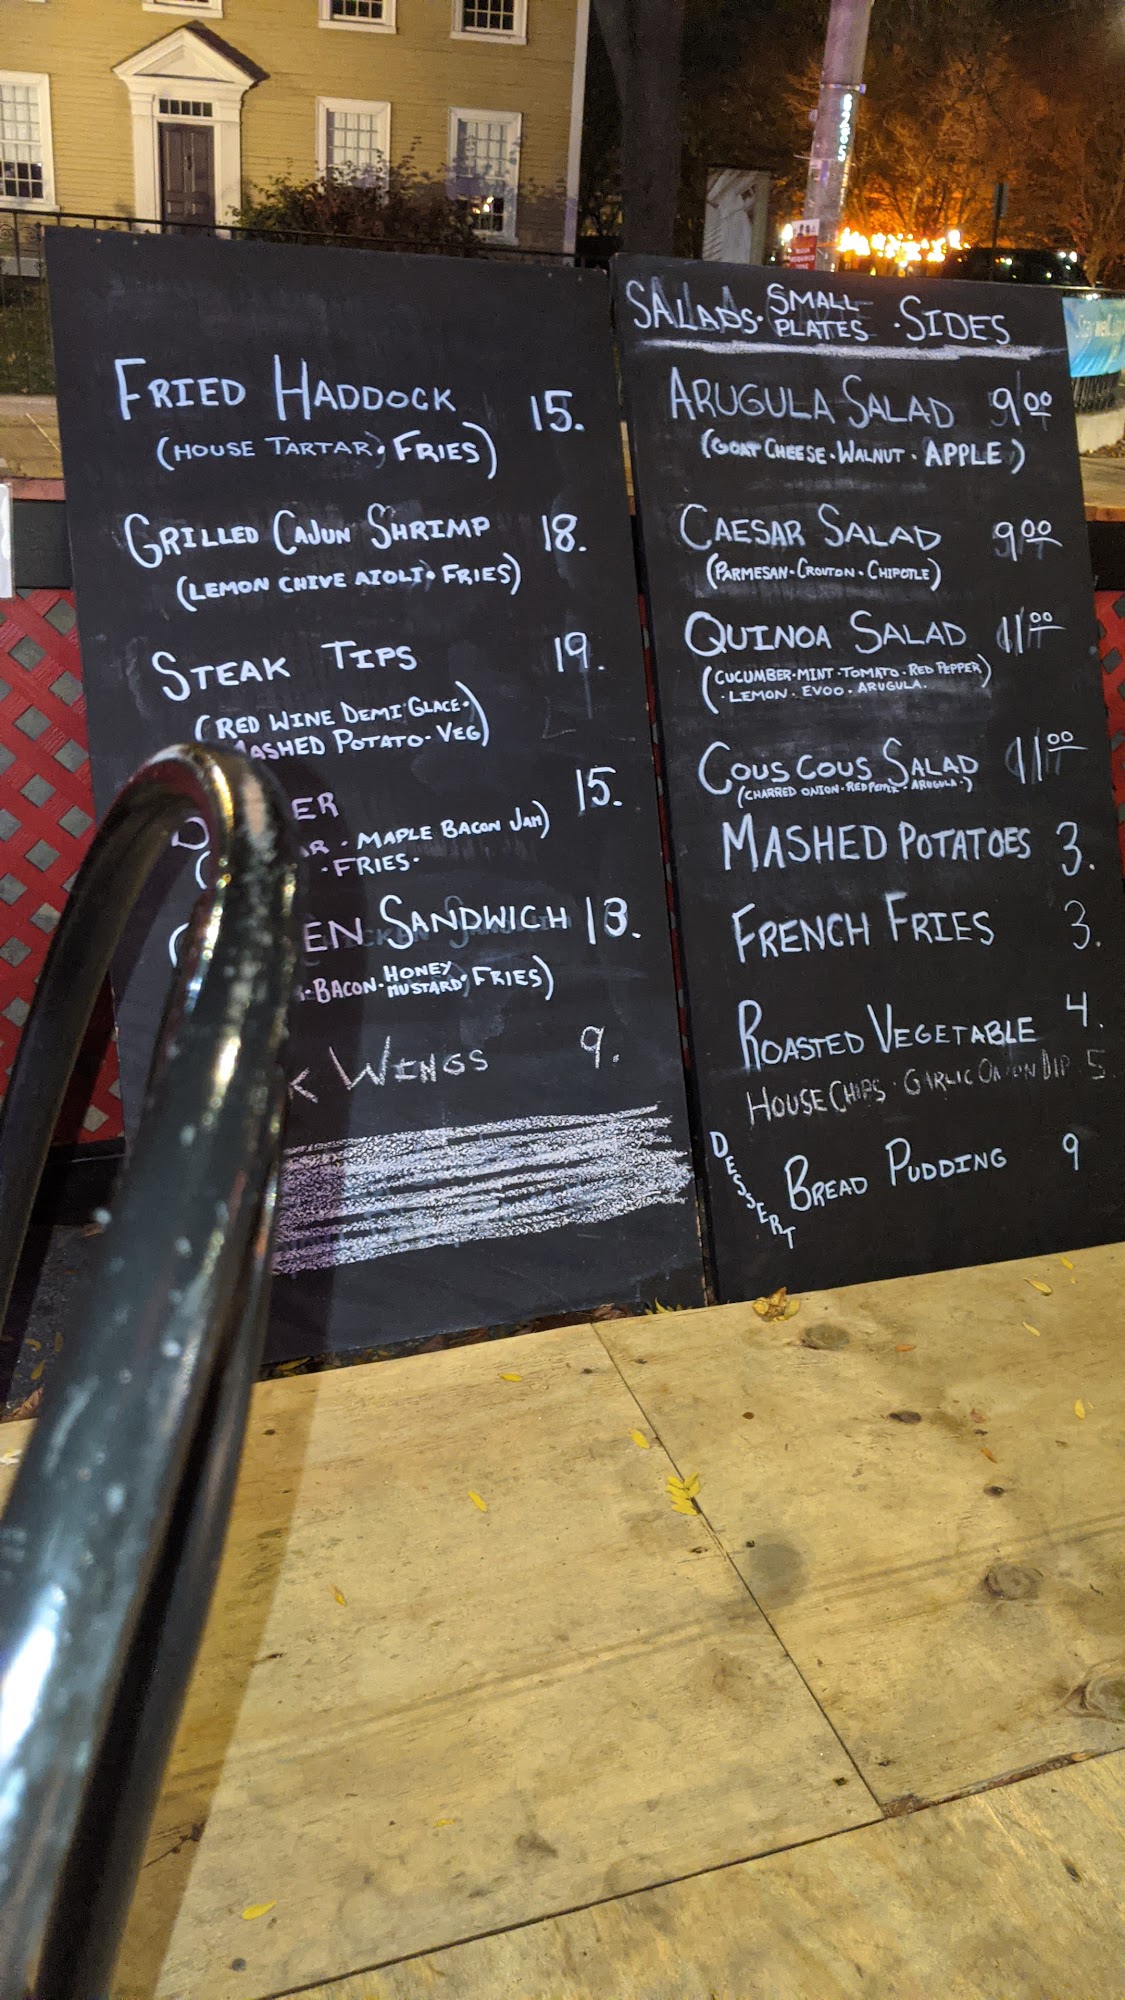 FRIED HADDOCK 15.
(HOUSE TARTAR, FRIES)
GRILLED CAJUN SHRIMP 18.
(LEMON CHIVE AIOLI • FRIES)
STEAK TIPS 19.
(RED WINE DEMI GLACE •
MASHED POTATO • VEG)
ER 15.
AR • MAPLE BACON JAM)
• FRIES •
EN SANDWICH 13.
• BACON • HONEY MUSTARD • FRIES)
K WINGS 9.
SALADS • SMALL PLATES • SIDES
ARUGULA SALAD 9.00
(GOAT CHEESE • WALNUT • APPLE)
CAESAR SALAD 9.00
(PARMESAN • CROUTON • CHIPOTLE)
QUINOA SALAD 11.00
(CUCUMBER • MINT • TOMATO • RED PEPPER)
• LEMON • EVOO • ARUGULA.
COUS COUS SALAD 11.00
(CHARRED ONION • RED PEPPER • ARUGULA •)
MASHED POTATOES 3.
FRENCH FRIES 3.
ROASTED VEGETABLE 4.
HOUSE CHIPS • GARLIC ONION DIP 5
DESSERT BREAD PUDDING 9